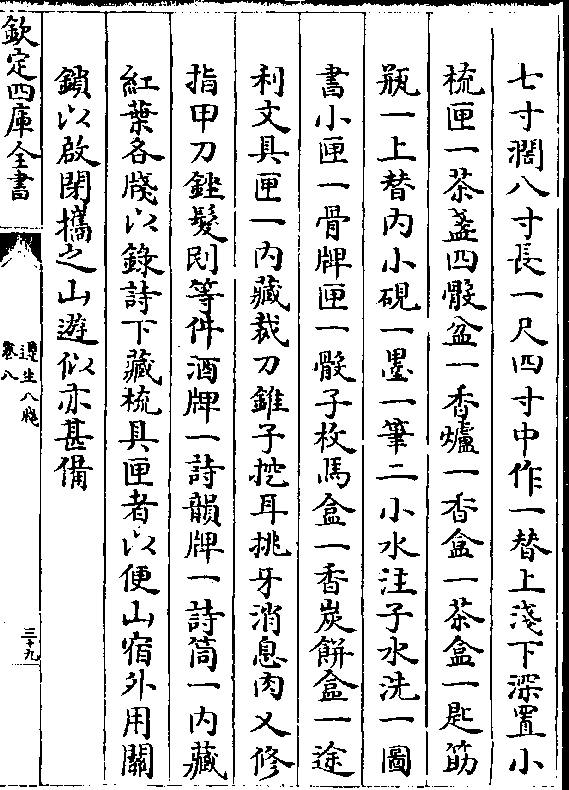 七寸濶八寸長一尺四寸中作一替上淺下深置小
梳匣一茶盞四骰盆一香爐一香盒一茶盒一匙筯
瓶一上替内小硯一墨一筆二小水注子水洗一圖
書小匣一骨牌匣一骰子枚馬盒一香炭餅盒一途
利文具匣一内藏裁刀錐子挖耳挑牙消息肉叉修
指甲刀銼髮刡等件酒牌一詩韻牌一詩筒一内藏
紅葉各牋以錄詩下藏梳具匣者以便山宿外用關
鎖以啟閉攜之山遊似亦甚備
欽定四庫全書
遵生八牋
卷八
三十九